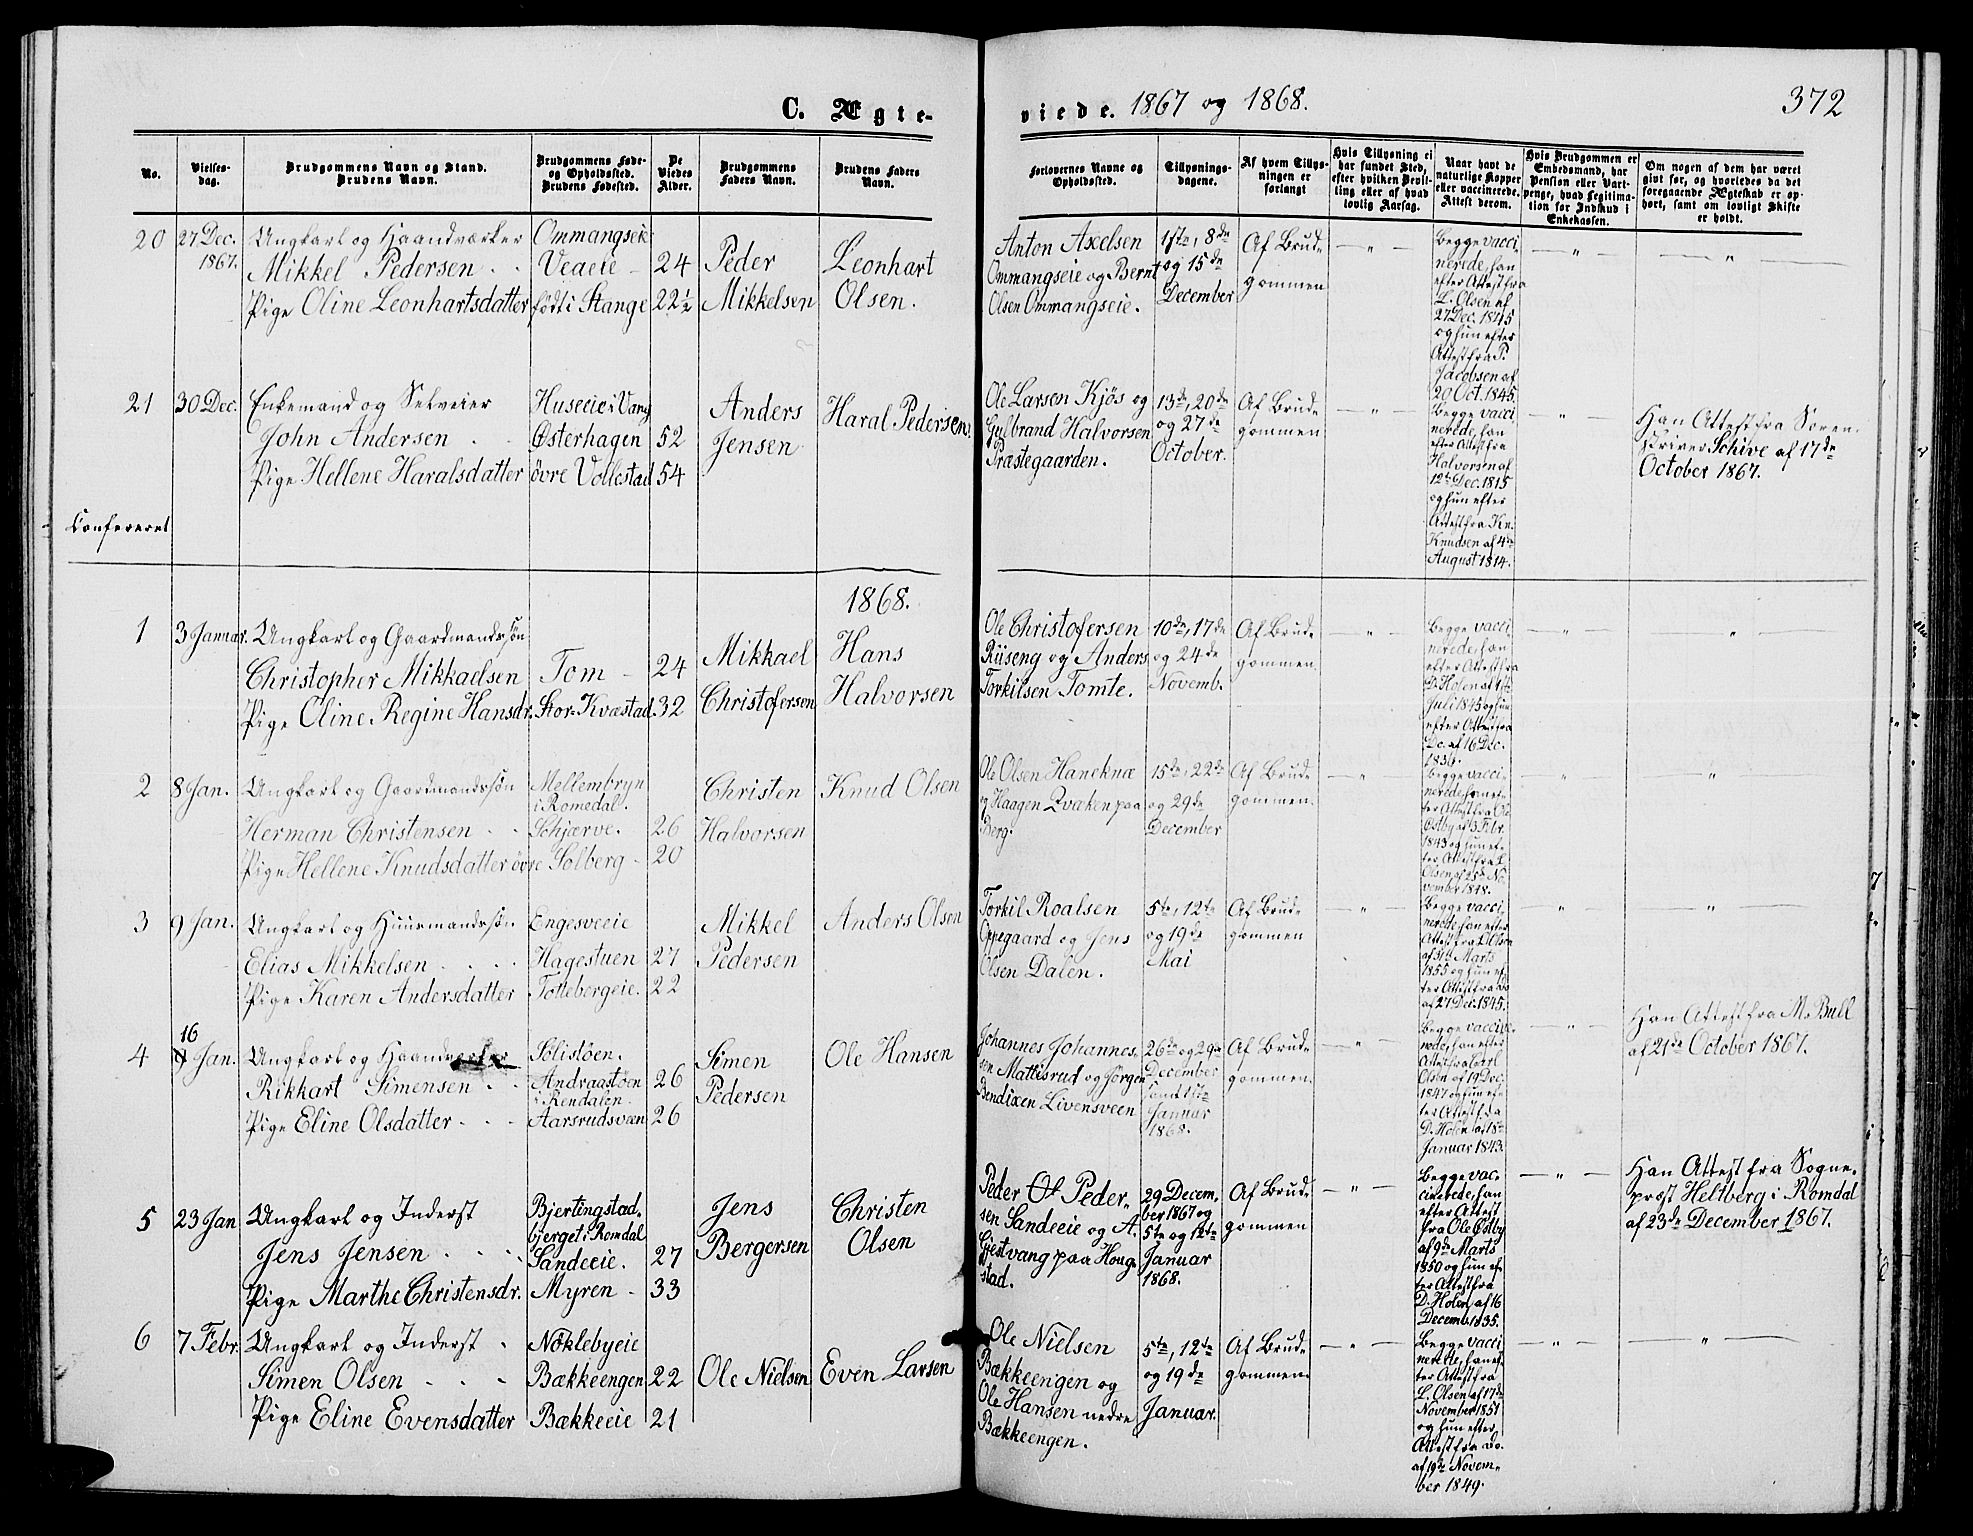 C. Ægte-
viede. 1867 og 1868.
372
No.
Vielses-
dag.
Brudgommens Navn og Stand.
Brudens Navn.
Brudgommens Føde-
og Opholdssted.
Brudens Fødested.
De
Viedes
Alder.
Brudgommens
Faders Navn.
Brudens Faders
Navn.
Forlovernes Navne og
Opholdssted.
Tillysnings-
dagene.
Af hvem Tillys-
ningen er
forlangt
Hvis Tillysning ei
har fundet Sted,
efter hvilken Bevil-
ling eller af hvad
lovlig Aarsag.
Naar havt de
naturlige Kopper
eller vaccinerede.
Attest derom.
Hvis Brudgommen er
Embedsmand, har
Pension eller Vart-
penge, hvad Legitima-
tion for Indskud i
Enkekassen.
Om nogen af dem har været
givt før, og hvorledes da det
foregaaende Ægteskab er op-
hørt, samt om lovligt Skifte
er holdt.
20
27 Dec.
1867.
Ungkarl og Haandværker
Mikkel Pedersen
Pige Oline Leonhartsdatter
Ommangseie
Veaeie
født i Stange
24
22½
Peder
Mikkelsen
Leonhart
Olsen.
Anton Axelsen
Ommangseie og Bernt
Olsen Ommangseie.
1ste, 8de
og 15de
December
Af Brud-
gommen
— " —
Begge vacci-
nerede, han
efter Attest fra
L. Olsen af
27 Dec. 1845
og hun efter
Attest fra P.
Jacobsen af
20 Oct. 1845.
— " —
— " —
21
30 Dec.
Enkemand og Selveier
John Andersen
Pige Hellene Haralsdatter
Huseeie i Vang
Østerhagen
övre Vollestad
52
54
Anders
Jensen
Haral Pedersen.
Ole Larsen Kjös og
Gulbrand Halvorsen
Præstegaarden.
13de, 20de
og 27de
October.
Af Brud-
gommen
— " —
Begge vacci-
nerede, han
efter Attest fra
Halvorsen af
12te Dec. 1815
og hun efter
Attest fra Kn.
Knudsen af 4de
August 1814.
— " —
Han Attest fra Soren-
skriver Schive af 17de
October 1867.
Confereret
1868.
1
3 Januar.
Ungkarl og Gaardmandssön
Christopher Mikkaelsen
Pige Oline Regine Hansdr.
Tom
Stor-Kvæstad.
24
32
Mikkael
Christofersen
Hans
Halvorsen
Ole Christofersen
Riiseng og Anders
Torkilsen Tomte.
10de, 17de
og 24de
Novemb.
Af Brud-
gommen.
— " —
Begge vacci
nerede, han
efter Attest fra
D. Holen af 1ste
Juli 1845 og hun
efter Attest fra
Do. af 16 Dec.
1836.
— " —
"
2
8 Jan.
Ungkarl og Gaardmandssön
Herman Christensen
Pige Hellene Knudsdatter
Mellembryn
i Romedal.
Schjærve.
övre Solberg
26
20
Christen
Halvorsen
Knud Olsen
Ole Olsen Haneknæ
og Haagen Qvaken paa
Berg.
15de, 22de
og 29de
December
Af Brud-
gommen.
— " —
Begge vacci-
nerede, han ef-
ter Attest fra Ole
Østby af 3 Febr.
1843 og hun ef-
ter Attest fra L.
Olsen af 25de No-
vember 1848.
— " —
"
3
9 Jan.
Ungkarl og Huusmandssön
Elias Mikkelsen
Pige Karen Andersdatter
Engesveeie
Hagestuen
Tottebergeie.
27
22
Mikkel
Pedersen
Anders Olsen
Torkil Roalsen
Oppegaard og Jens
Olsen Dalen.
5te, 12te
og 19de
Mai
Af Brud-
gommen
— " —
Begge vacci-
nerede, han efter
Attest fra L. Olsen
af 31te Marts
1855 og hun ef-
ter Attest fra Do
af 27 Dec. 1845.
"
"
4
16
9 Jan.
Ungkarl og Haandverker
Rikkart Simensen
Pige Eline Olsdatter
Solistöen.
Andraastöen
i Rendalen.
Aarsrudsvæn
26
26
Simen
Pedersen
Ole Hansen
Johannes Johannes-
sen Mattisrud og Jörgen
Bendixen Livensveen
26de og 29de
December
samt 1ste
Januar
1868.
Af Brud-
gommen.
— " —
Begge vacci-
nerede, han efter
Attest fra Carl
Olsen af 19 Dec.
1847 og hun ef-
ter Attest fra
D. Holen af 18
Januar 1843.
— " —
Han Attest fra M. Bull
af 21de October 1867.
5
23 Jan
Ungkarl og Inderst
Jens Jensen
Pige Marthe Christensdr.
Bjertingstad-
bjerget i Romdal
Sandeeie.
Myren
27
33
Jens
Bergersen
Christen
Olsen
Peder Ol Peder-
sen Sandeeie og A.
Gjestvang paa Houg-
stad.
29 Decem-
ber 1867 og
5te og 12te
Januar
1868.
Af Brud-
gommen
— " —
Begge vac-
cinerede, han
efter Attest
fra Ole Østby
af 9de Marts
1850 og hun ef-
ter Attest fra
D. Holen af 16
Decemb. 1835.
— " —
Han Attest fra Sogne-
præst Heltberg i Romdal
af 23de December 1867.
6
7 Febr.
Ungkarl og Inderst
Simen Olsen
Pige Eline Evensdatter
Nöklebyeie
Bækkeengen
Bækkeeie
22
21
Ole Nielsen
Even Larsen
Ole Nielsen
Bækkeengen og
Ole Hansen nedre
Bækkeengen.
5te, 12te
og 19de
Januar.
Af Brud-
gommen.
— " —
Begge vacci
nerede, han ef-
ter Attest fra
L. Olsen af 17de
November 1851
og hun efter
Attest fra Do.
af 19de Novem-
ber 1849.
— " —
— " —